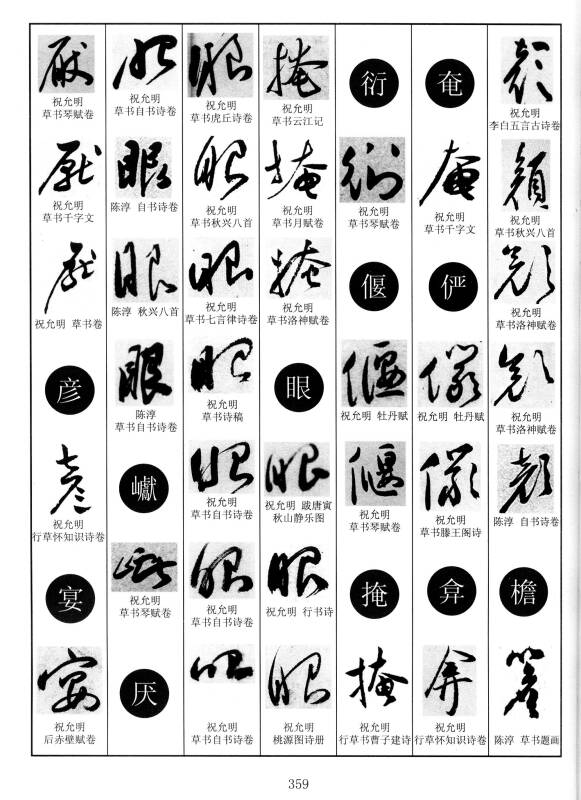 顏
祝允明
李白五言古诗卷
顏
祝允明
草书秋兴八首
顏
祝允明
草书洛神赋卷
顏
祝允明
草书洛神赋卷
顏
陈淳 自书诗卷
檐
簷
陈淳 草书题画
奄
奄
祝允明
草书千字文
俨
儼
祝允明 牡丹赋
儼
祝允明
草书滕王阁诗
弇
弇
祝允明
行草怀知识诗卷
衍
衍
祝允明
草书琴赋卷
偃
偃
祝允明 牡丹赋
偃
祝允明
草书琴赋卷
掩
掩
祝允明
行草书曹子建诗
掩
祝允明
草书云江记
掩
祝允明
草书月赋卷
掩
祝允明
草书洛神赋卷
眼
眼
祝允明 跋唐寅
秋山静乐图
眼
祝允明 行书诗
眼
祝允明
桃源图诗册
眼
祝允明
草书虎丘诗卷
眼
祝允明
草书秋兴八首
眼
祝允明
草书七言律诗卷
眼
祝允明
草书诗稿
眼
祝允明
草书自书诗卷
眼
祝允明
草书自书诗卷
眼
祝允明
草书自书诗卷
眼
祝允明
草书自书诗卷
眼
陈淳 自书诗卷
眼
陈淳 秋兴八首
眼
陈淳
草书自书诗卷
巘
巘
祝允明
草书琴赋卷
厌
厭
祝允明
草书琴赋卷
厭
祝允明
草书千字文
厭
祝允明 草书卷
彦
彦
祝允明
行草怀知识诗卷
宴
宴
祝允明
后赤壁赋卷
359